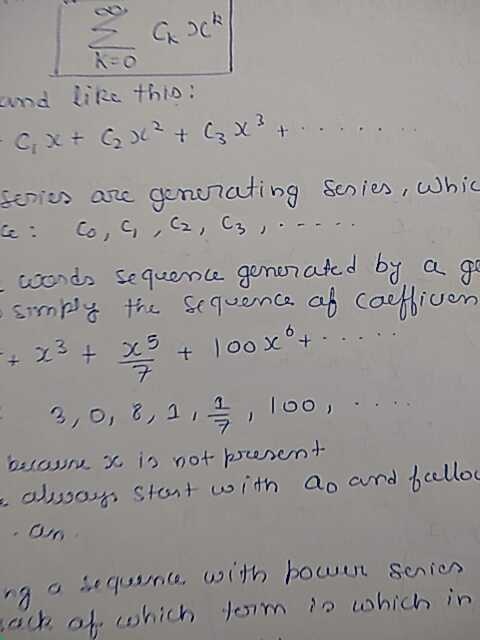 ∞
Σ Cₖ xᵏ
k=0
and like this:
C₁x + C₂x² + C₃x³ + .......
series are generating series, whic
ce: C₀, C₁, C₂, C₃, .....
words sequence generated by a ge
simply the sequence of coefficen
+ x³ + x⁵/7 + 100x⁶ + .....
3, 0, 8, 1, 1/7, 100, ....
because x is not present
always start with a₀ and follo
. an.
ng a sequence with power series
ack of which term is which in